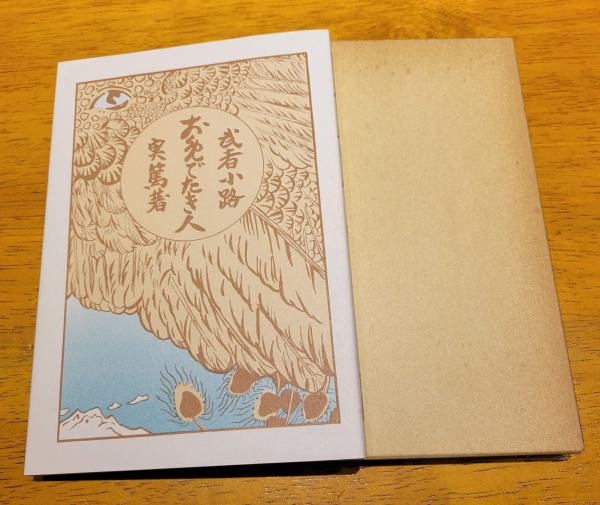 武者小路
お免でたき人
実篤著